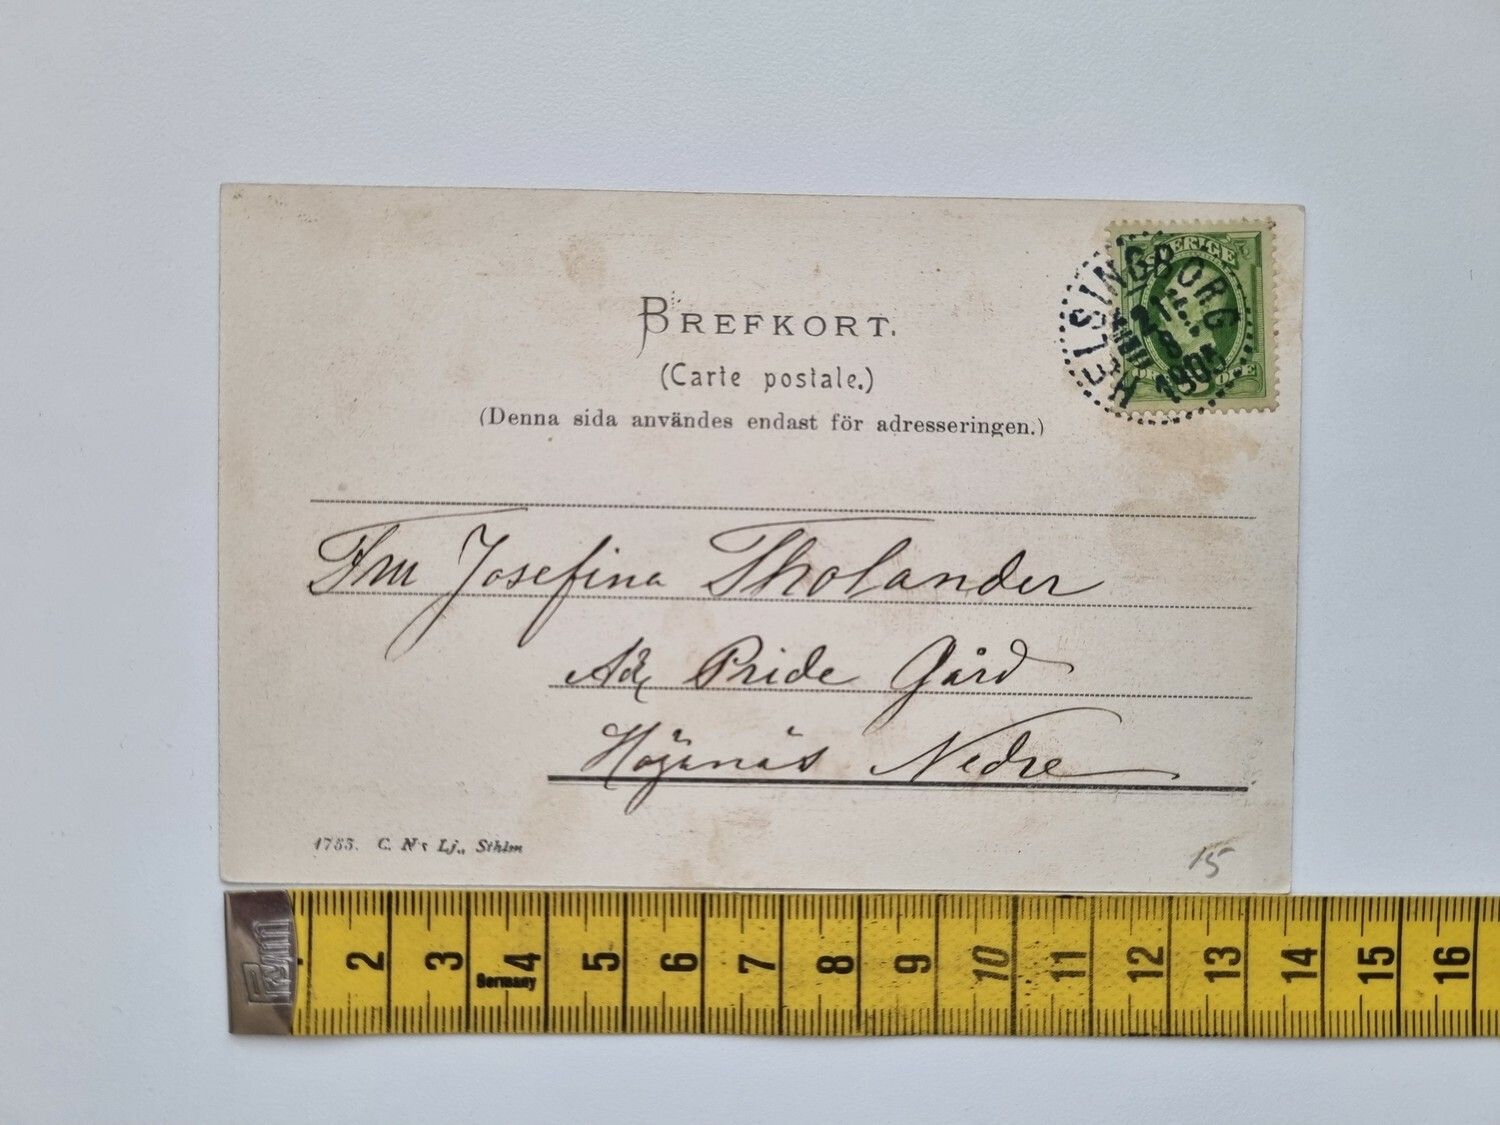 BREFKORT.
(Carte postale.)
(Denna sida användes endast för adresseringen.)
SVERIGE
HELSINGBORG
21
8
1905
Fru Josefina Tholander
Adr Pride Gård
Höganäs Nedre
1753. C. N:s Lj., Sthlm
15
2 3 4 5 6 7 8 9 10 11 12 13 14 15 16
Germany